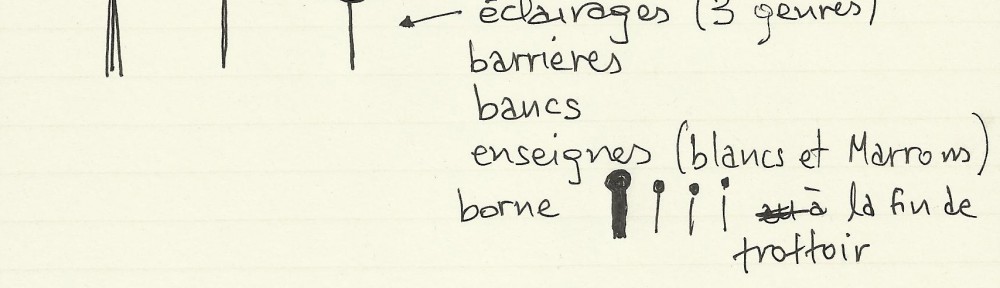 éclairages (3 genres)
barrières
bancs
enseignes (blancs et Marrons)
borne à la fin de
trottoir